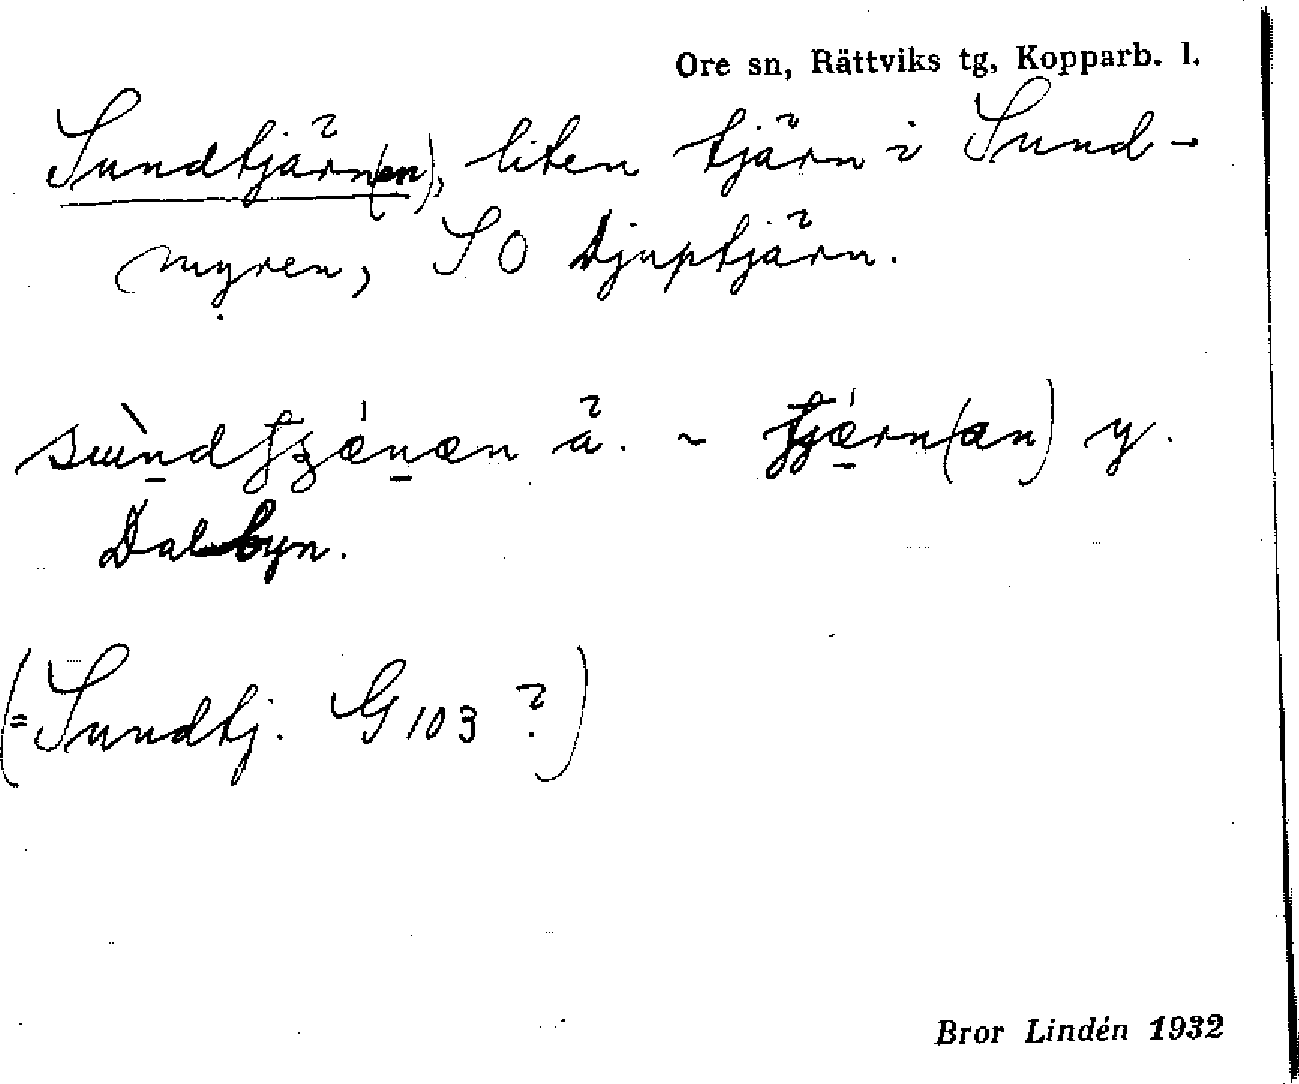 Ore sn, Rättviks tg, Kopparb. l.
Sundtjärn(en), liten tjärn i Sund-
myren, SO Djuptjärn.
å. ~ y.
Dalbyn.
(= Sundtj. G 103 ?)
Bror Lindén 1932